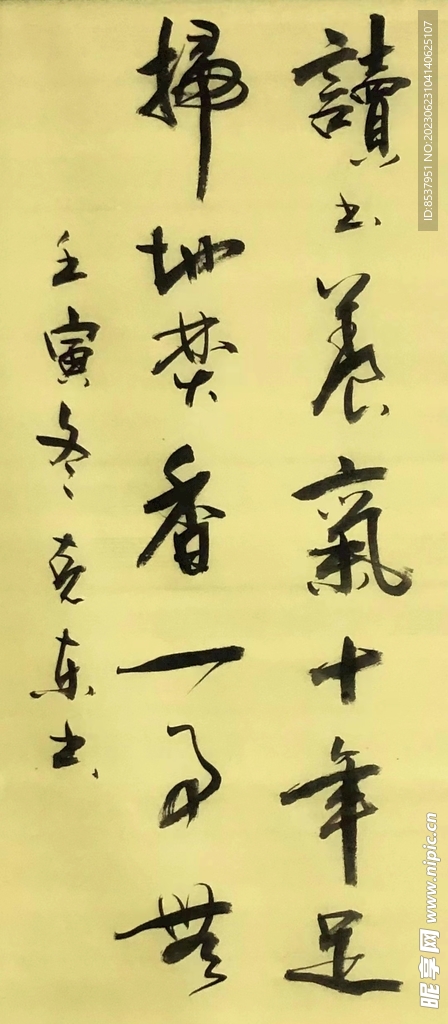 讀书養氣十年足
掃地焚香一事無
壬寅冬克东书
ID:8537951 NO:20230623104140625107
昵享网 www.nipic.cn